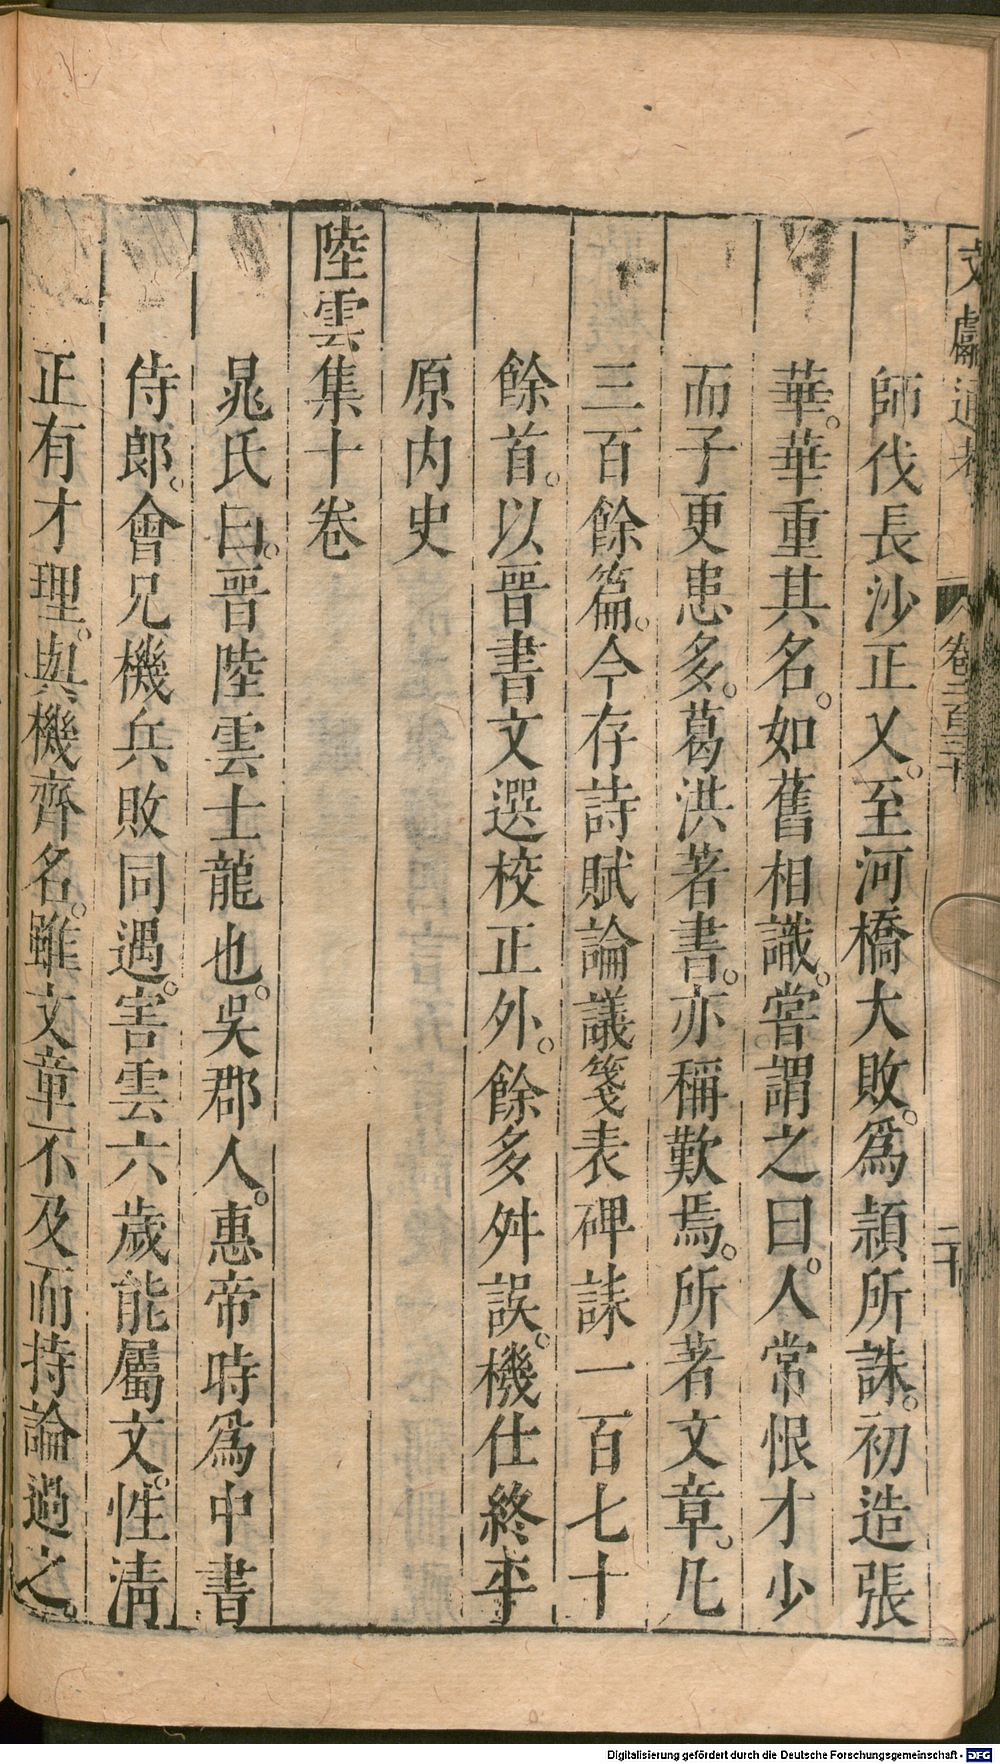 文獻通考 卷二百三十 二十
師伐長沙正乂。至河橋大敗。爲頴所誅。初造張
華。華重其名。如舊相識。嘗謂之曰。人常恨才少
而子更患多。葛洪著書。亦稱歎焉。所著文章。凡
三百餘篇。今存詩賦論議箋表碑誄一百七十
餘首。以晉書文選校正外。餘多舛誤。機仕終平
原内史
陸雲集十卷
晁氏曰。晉陸雲士龍也。吳郡人。惠帝時爲中書
侍郎。會兄機兵敗同遇。害雲六歲能屬文。性淸
正有才理。與機齊名。雖文章不及而持論過之。
Digitalisierung gefördert durch die Deutsche Forschungsgemeinschaft - DFG